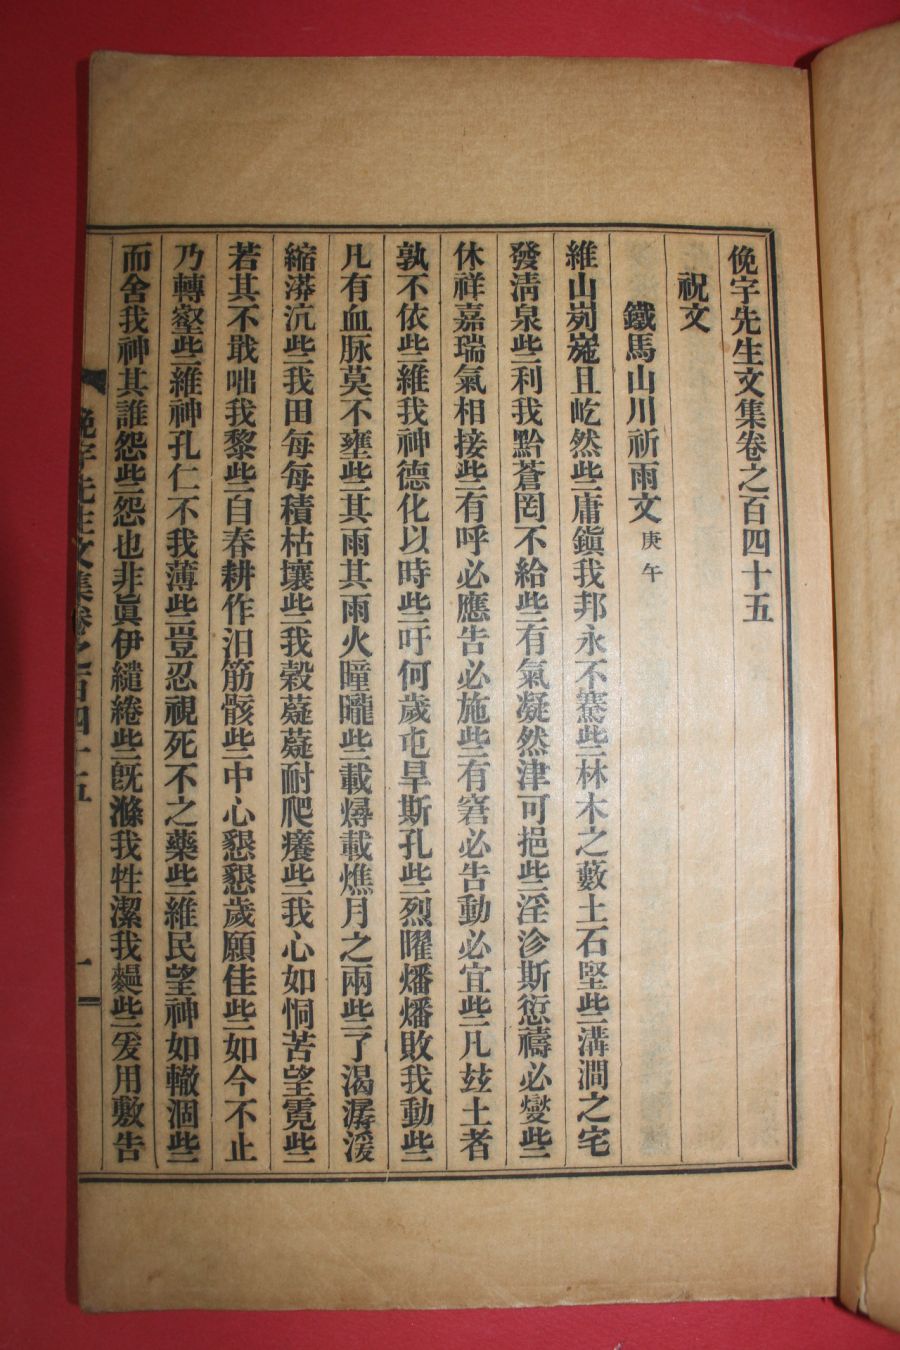 俛宇先生文集卷之百四十五
祝文
鐵馬山川祈雨文庚午
維山剡嵬且屹然些庸鎭我邦永不騫些林木之藪土石堅些溝澗之宅
發淸泉些利我黔蒼罔不給些有氣凝然津可挹些淫沴斯愆禱必燮些
休祥嘉瑞氣相接些有呼必應告必施些有窘必告動必宜些凡玆土者
孰不依些維我神德化以時些吁何歲屯旱斯孔些烈曜燔燔敗我動些
凡有血脉莫不壅些其雨其雨火曈曨些載燖載燋月之兩些了渴潺湲
縮漭沆些我田每每積枯壤些我穀薿薿耐爬癢些我心如恫苦望霓些
若其不戢咄我黎些自春耕作汨筋骸些中心懇懇歲願佳些如今不止
乃轉壑些維神孔仁不我薄些豈忍視死不之藥些維民望神如轍涸些
而舍我神其誰怨些怨也非眞伊繾綣些旣滌我牲潔我些爰用敷告
俛宇先生文集卷之百四十五
一